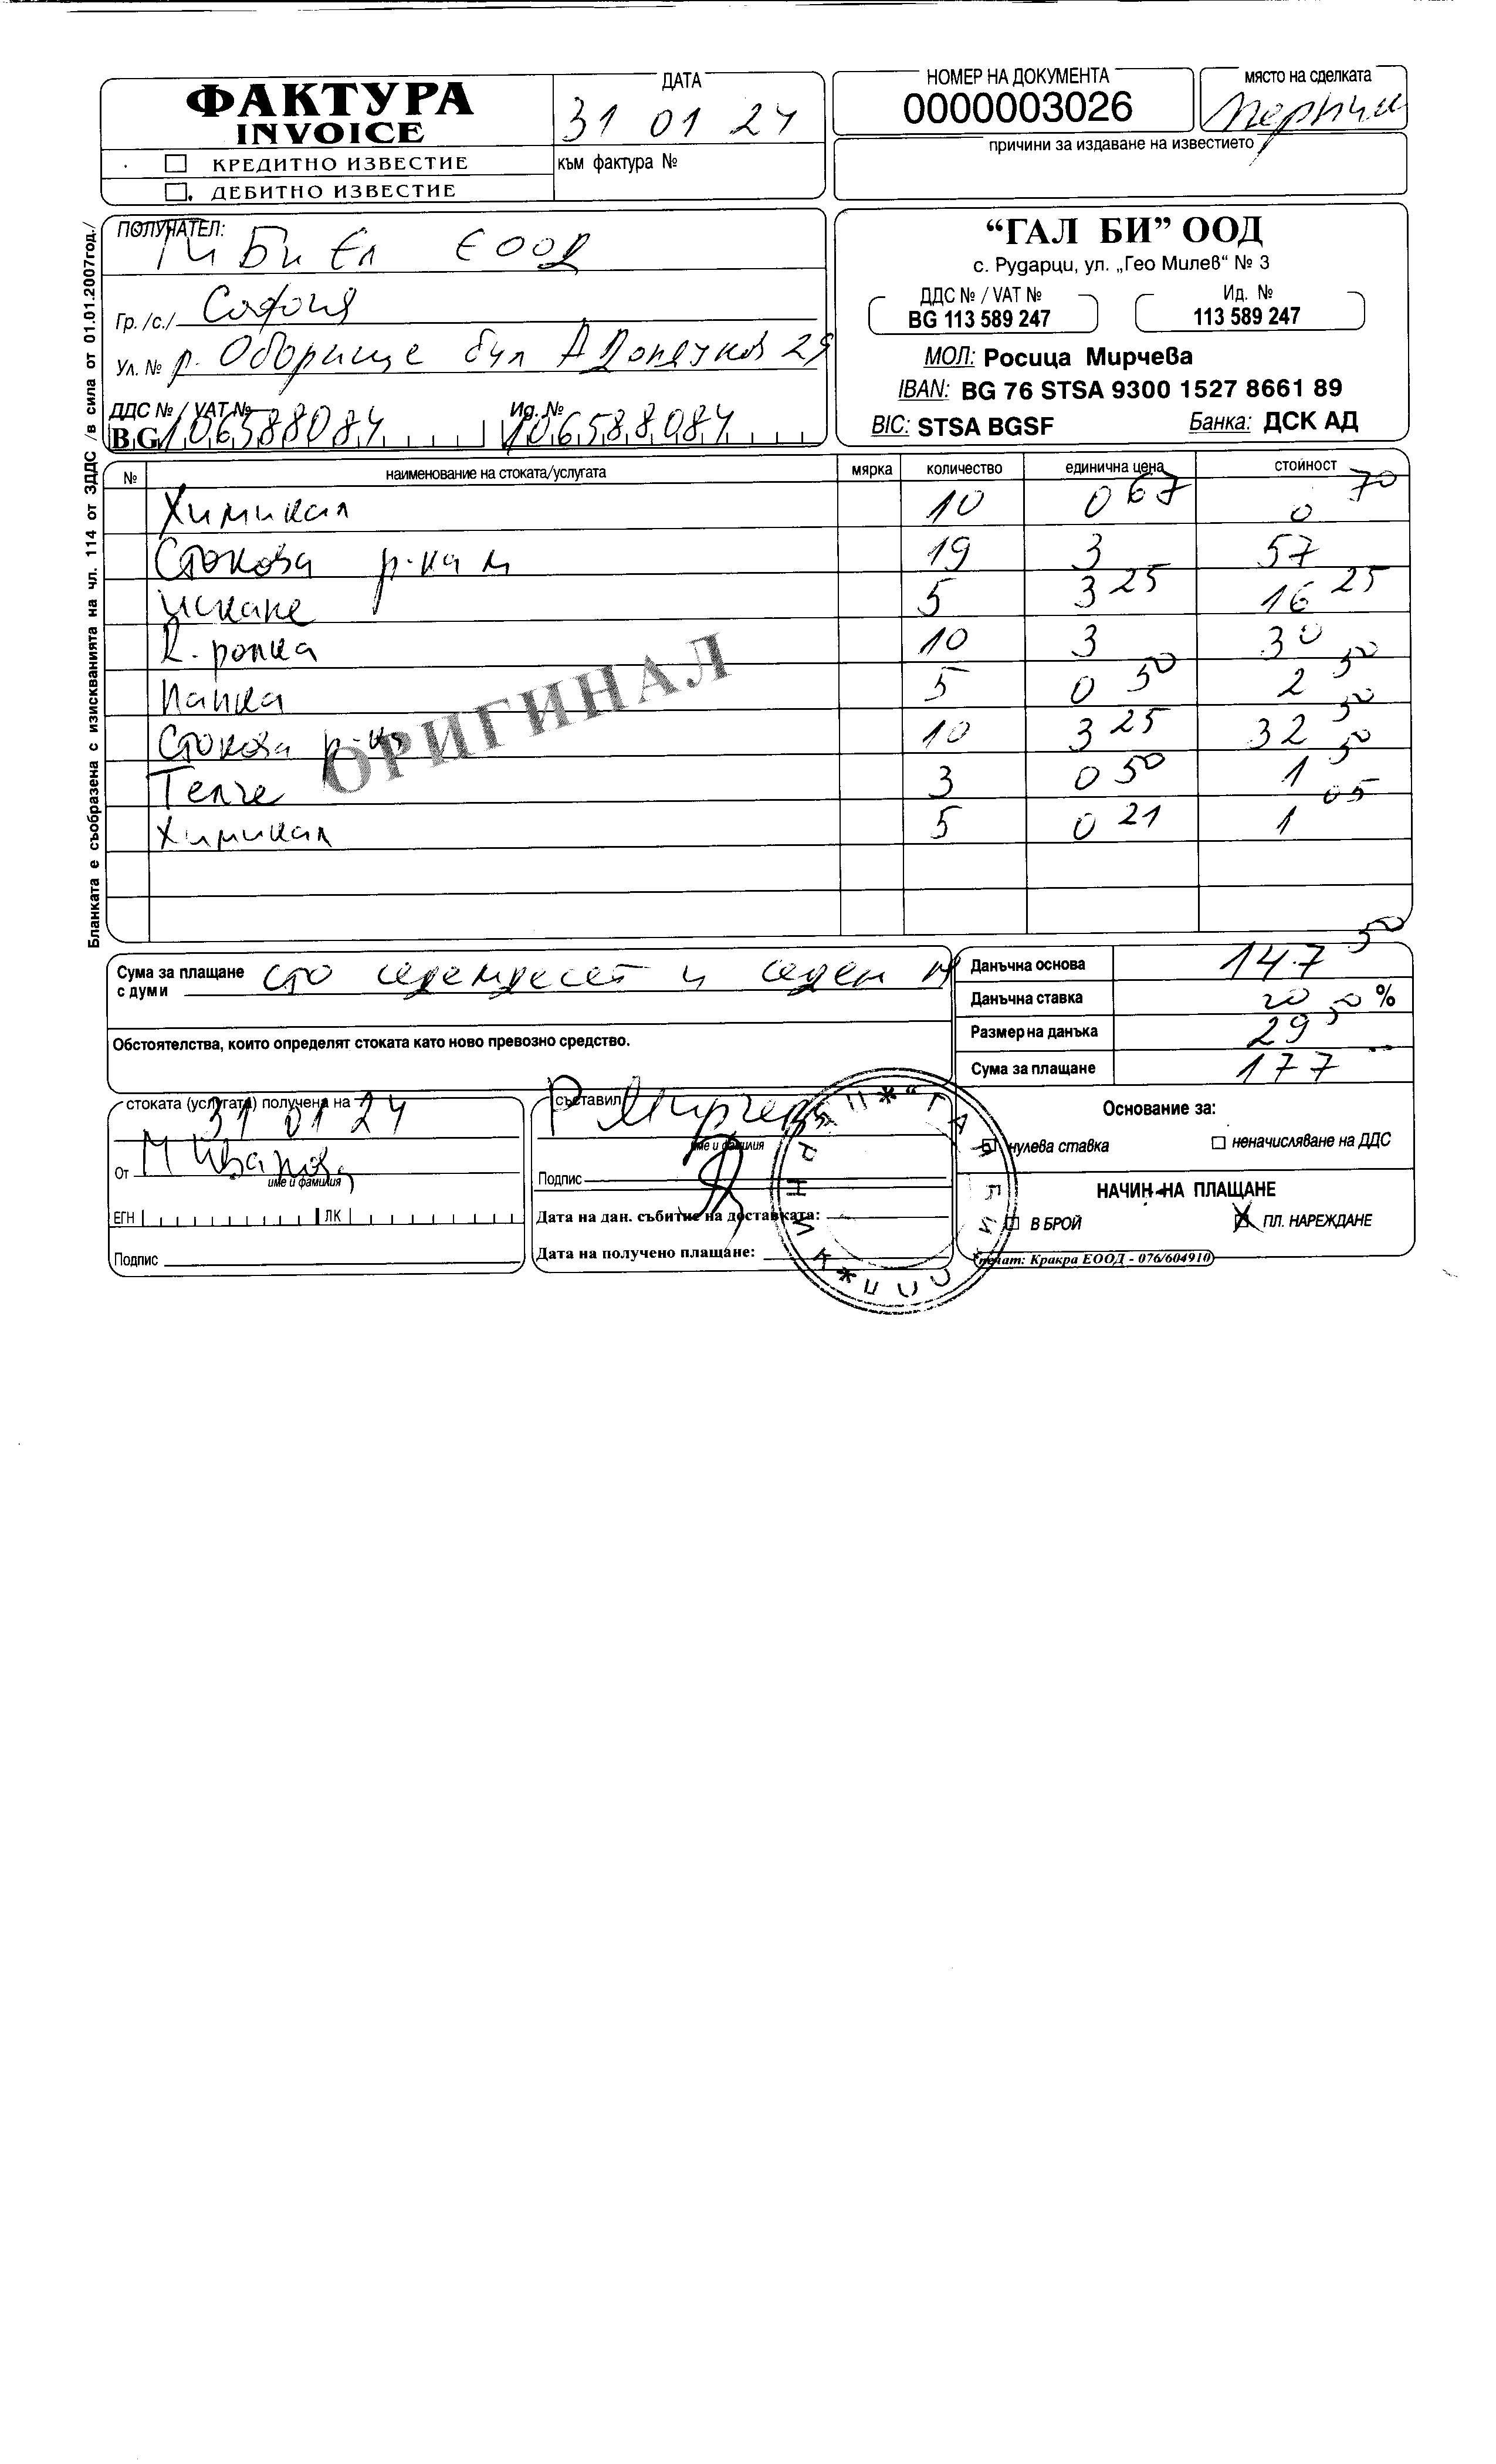 ФАКТУРА
INVOICE
КРЕДИТНО ИЗВЕСТИЕ
ДЕБИТНО ИЗВЕСТИЕ
ДАТА
31 01 24
към фактура №
НОМЕР НА ДОКУМЕНТА
0000003026
място на сделката
Перник
причини за издаване на известието
ПОЛУЧАТЕЛ:
Ти Би Ел ЕООД
Гр. /с./ София
Ул. № р. Оборище бул А Дондуков 29
ДДС № / VAT №
BG 106588084
Ид. №
106588084
"ГАЛ БИ" ООД
с. Рударци, ул. „Гео Милев" № 3
ДДС № / VAT №
BG 113 589 247
Ид. №
113 589 247
МОЛ: Росица Мирчева
IBAN: BG 76 STSA 9300 1527 8661 89
BIC: STSA BGSF Банка: ДСК АД
Бланката е съобразена с изискванията на чл. 114 от ЗДДС /в сила от 01.01.2007год./
№ наименование на стоката/услугата мярка количество единична цена стойност
Химикал 10 0 67 0 70
Стокова р-ка м 19 3 57
Искане 5 3 25 16 25
К. ролка 10 3 30
Папка 5 0 50 2 50
Стокова р-ка 10 3 25 32 50
Телче 3 0 50 1 50
Химикал 5 0 21 1 05
ОРИГИНАЛ
Сума за плащане
с думи сто седемдесет и седем лв
Обстоятелства, които определят стоката като ново превозно средство.
Данъчна основа 147 50
Данъчна ставка 20 %
Размер на данъка 29 50
Сума за плащане 177
стоката (услугата) получена на
31 01 24
От М Иванова
име и фамилия
ЕГН ЛК
Подпис
съставил
Р Мирчева
име и фамилия
Подпис
Дата на дан. събитие на доставката:
Дата на получено плащане:
Основание за:
нулева ставка
неначисляване на ДДС
НАЧИН НА ПЛАЩАНЕ
В БРОЙ
ПЛ. НАРЕЖДАНЕ
печат: Кракра ЕООД - 076/604910